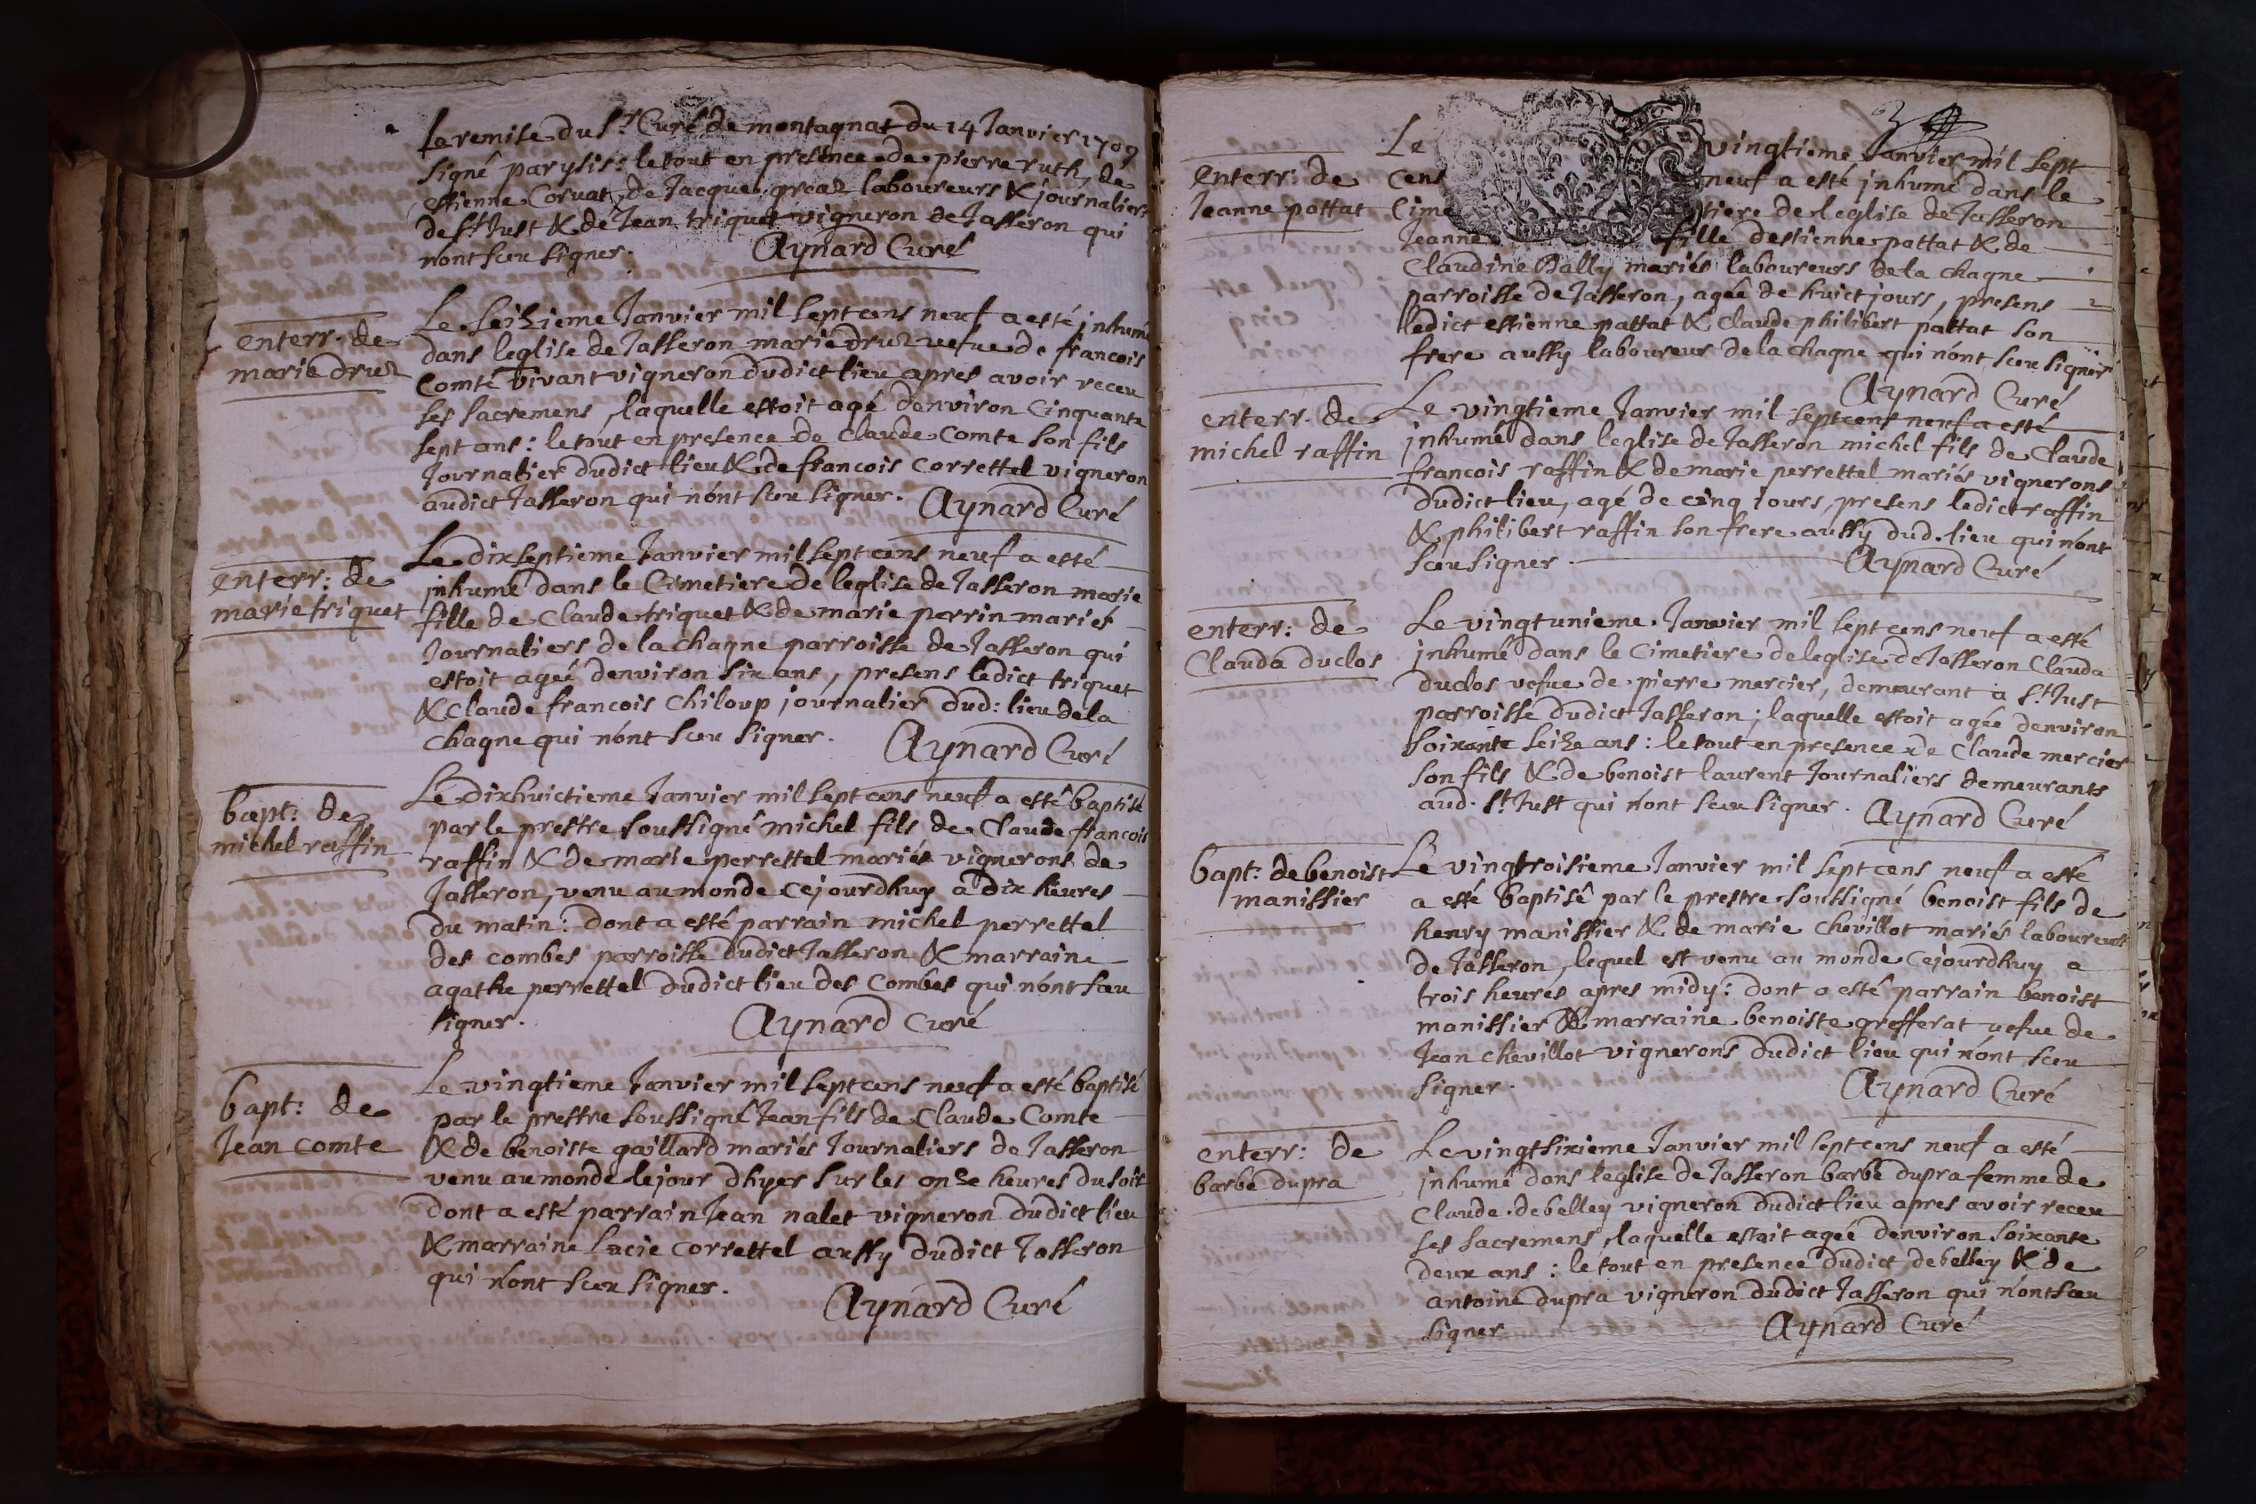 la remise du Sr Curé de montagnat du 14 Janvier 1709
signé parysis: le tout en presence de pierre ruth, de
estienne Corvat, de Jacques greaz laboureurs & journaliers
de St Just & de Jean triquet vigneron de Jasseron qui
nont sceu signer. Aynard Curé
enterr. de
marie druz
Le seizieme Janvier mil sept cens neuf a esté inhumé
dans leglise de Jasseron marie druz vefue de francois
Comte vivant vigneron dudict lieu apres avoir receu
ses sacremens, laquelle estoit agé denviron cinquante
sept ans: le tout en presence de Claude Comte son fils
Journalier dudict lieu & de francois correttel vigneron
audict Jasseron qui n'ont sceu signer. Aynard Curé
enterr: de
marie triquet
Le dixseptieme Janvier mil sept cens neuf a esté
inhumé dans le Cimetiere de leglise de Jasseron marie
fille de Claude triquet & de marie perrin mariés
Journaliers de la chagne parroisse de Jasseron qui
estoit agée denviron six ans, presens ledict triquet
& claude francois chiloup journalier dud: lieu de la
chagne qui n'ont sceu signer. Aynard Curé
bapt: de
michel raffin
Le dixhuictieme Janvier mil sept cens neuf a esté baptisé
par le prestre soussigné michel fils de Claude francois
raffin & de marie perrettel mariés vignerons de
Jasseron, venu au monde cejourdhuy a dix heures
du matin: dont a esté parrain michel perrettel
des combes parroisse dudict Jasseron & marraine
agathe perrettel dudict lieu des Combes qui n'ont sceu
signer. Aynard Curé
bapt: de
Jean comte
Le vingtieme Janvier mil sept cens neuf a esté baptisé
par le prestre soussigné Jean fils de Claude Comte
& de benoiste gaillard mariés Journaliers de Jasseron
venu au monde le jour dhyer sur les onze heures du soir
dont a esté parrain Jean nalet vigneron dudict lieu
& marraine Lucie correttel aussy dudict Jasseron
qui n'ont sceu signer.
Aynard Curé
3
enterr: de
Jeanne pottat
Le vingtieme Janvier mil sept
cens neuf a esté inhumé dans le
Cimetiere de leglise de Jasseron
Jeanne fille destienne pattat & de
Claudine Bally mariés laboureurs de la chagne
parroisse de Jasseron, agée de huict jours, presens
ledict estienne pattat & Claude philibert pattat son
frere aussy laboureur de la chagne qui n'ont sceu signer
Aynard Curé
enterr. de
michel raffin
Le vingtieme Janvier mil sept cens neuf a esté
inhumé dans leglise de Jasseron michel fils de Claude
francois raffin & de marie perrettel mariés vignerons
dudict lieu, agé de cinq iours, presens ledict raffin
& philibert raffin son frere aussy dud. lieu qui n'ont
sceu signer. Aynard Curé
enterr: de
Clauda duclos
Le vingtunieme Janvier mil sept cens neuf a esté
inhumé dans le Cimetiere de leglise de Jasseron Clauda
duclos vefue de pierre mercier, demeurant a St Just
parroisse dudict Jasseron; laquelle estoit agée denviron
soixante seize ans: le tout en presence de Claude mercier
son fils & de benoist laurent Journaliers demeurants
aud. St Just qui n'ont sceu signer. Aynard Curé
bapt: de benoist
manissier
Le vingtroisieme Janvier mil sept cens neuf a esté
a esté baptisé par le prestre soussigné benoist fils de
henry manissier & de marie chevillot mariés laboureurs
de Jasseron, lequel est venu au monde cejourdhuy a
trois heures apres midy: dont a esté parrain benoist
manissier & marraine benoiste grefferat vefue de
Jean chevillot vignerons dudict lieu qui n'ont sceu
signer. Aynard Curé
enterr: de
barbe dupra
Le vingtsixieme Janvier mil sept cens neuf a esté
inhumé dans leglise de Jasseron barbe dupra femme de
Claude debelley vigneron dudict lieu apres avoir receu
ses sacremens, laquelle estoit agée denviron soixante
deux ans: le tout en presence dudict debelley & de
antoine dupra vigneron dudict Jasseron qui n'ont sceu
signer Aynard Curé